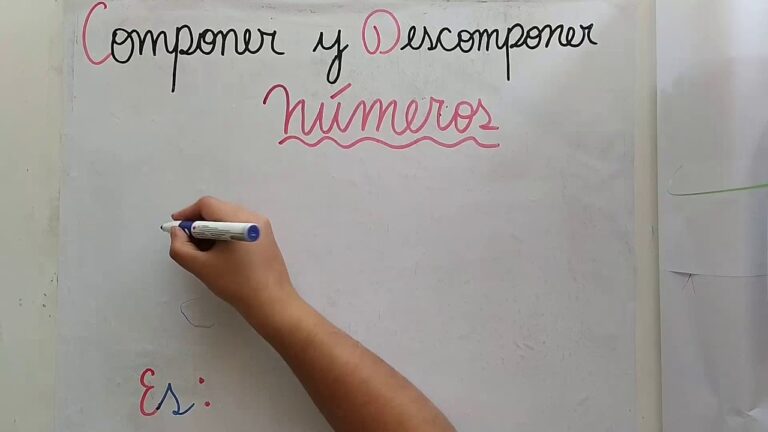 Componer y Descomponer
Números
Es: